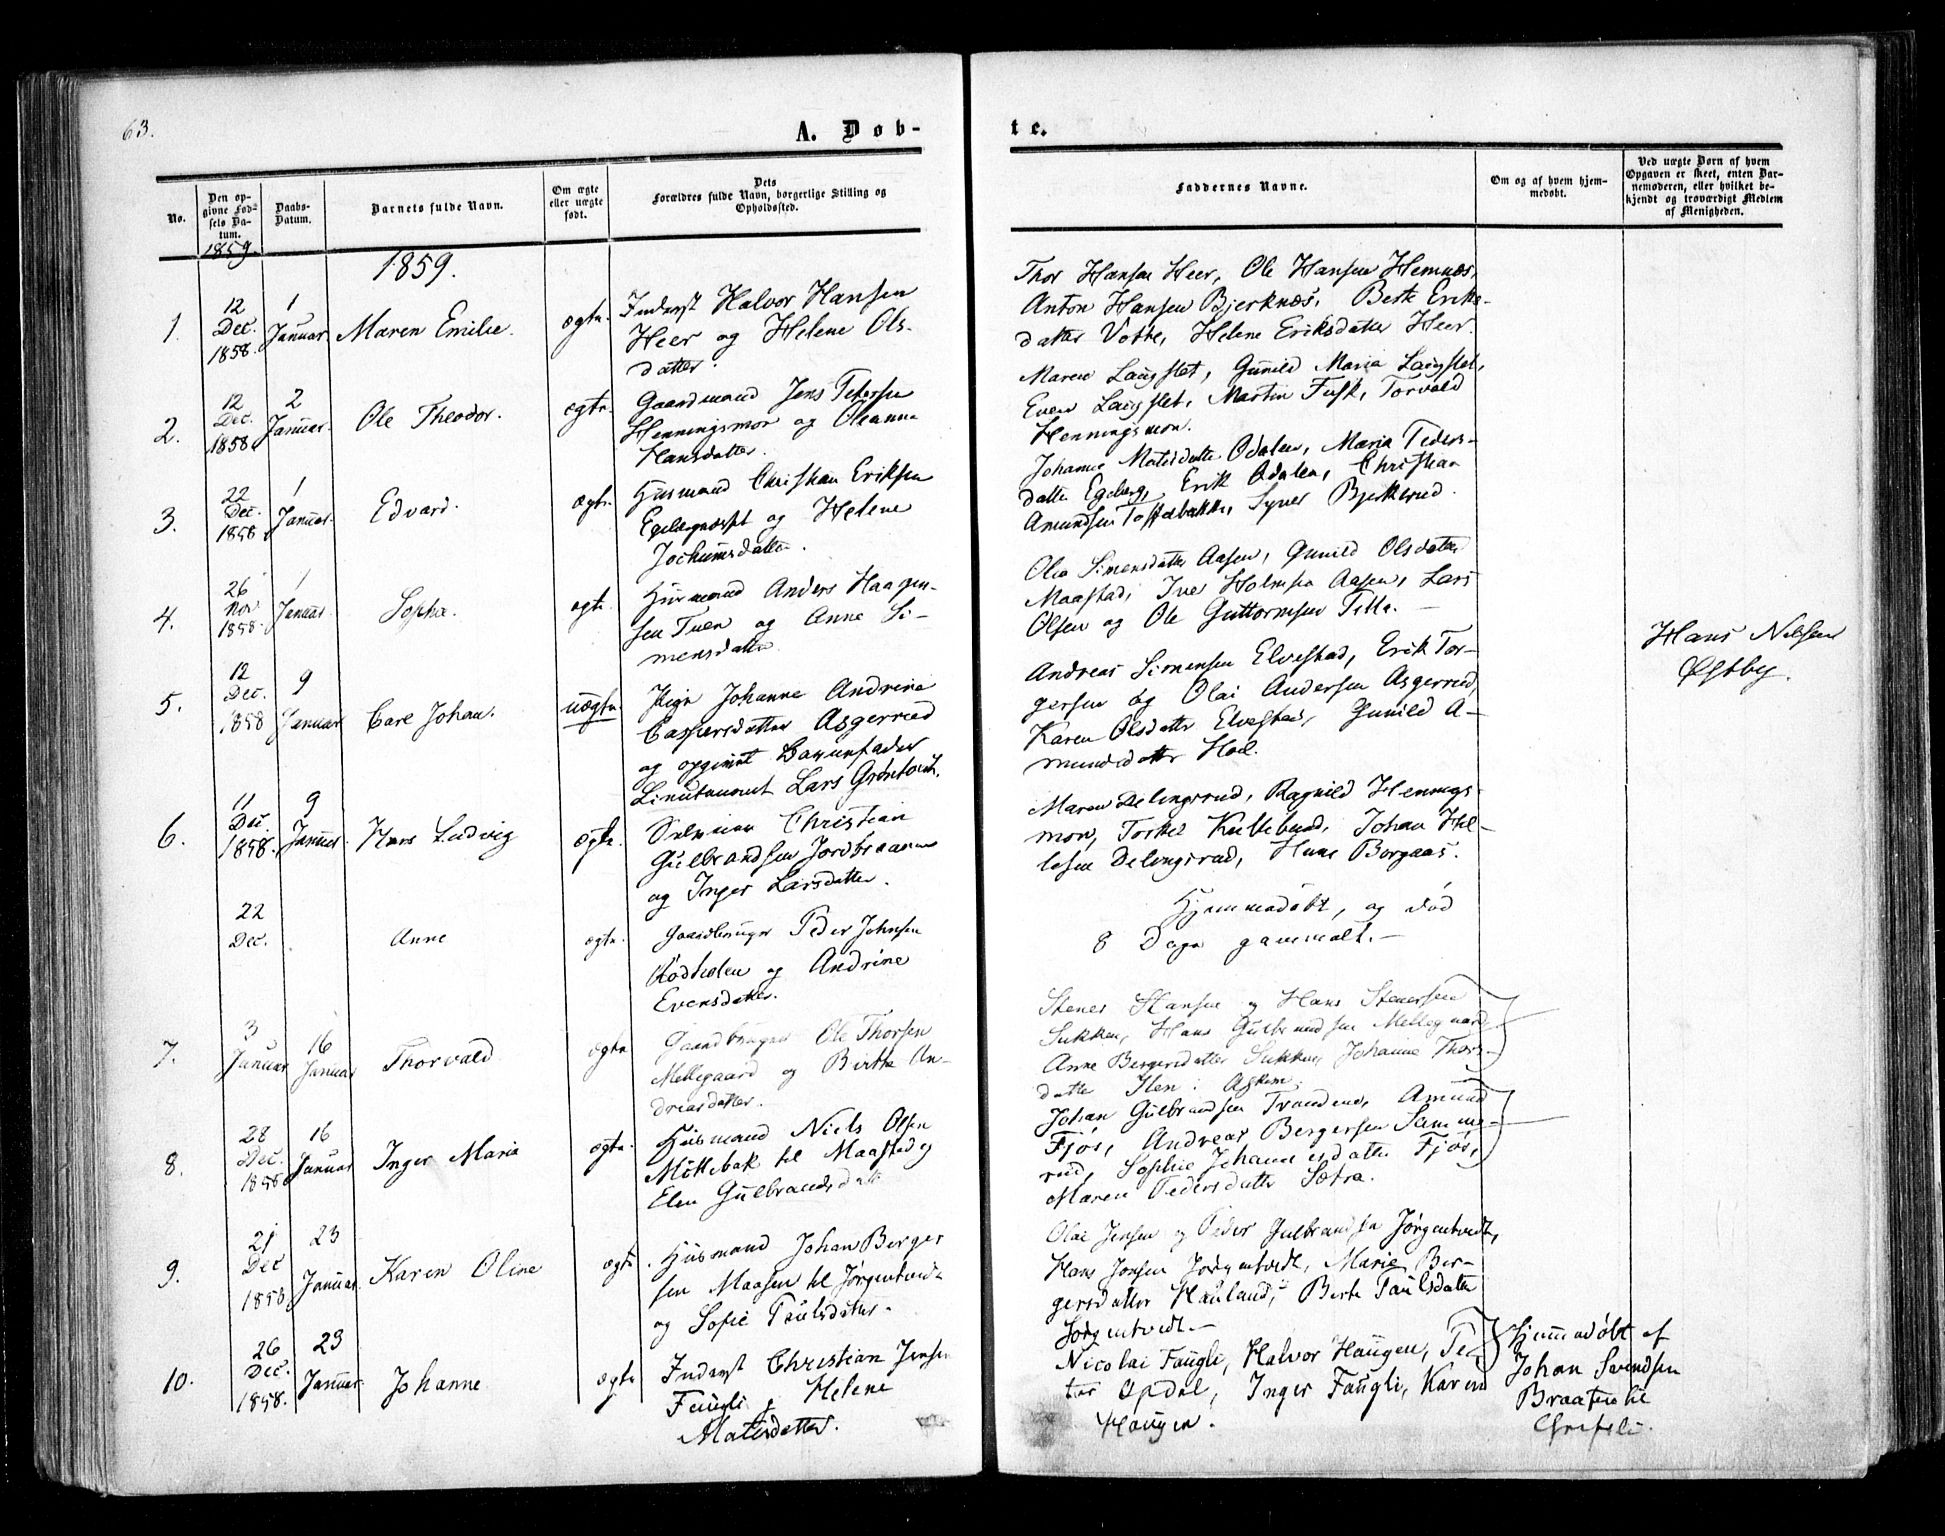 63.
A. Døb-
te.
No.
Den op-
givne Fød-
sels Da-
tum.
Daabs-
Datum.
Barnets fulde Navn.
Om ægte
eller uægte
født.
Dets
Forældres fulde Navn, borgerlige Stilling og
Opholdssted.
Faddernes Navne.
Om og af hvem hjem-
medøbt.
Ved uægte Børn af hvem
Opgaven er skeet, enten Bar-
nemoderen, eller hvilket be-
kjendt og troværdigt Medlem
af Menigheden.
1859.
1859.
1.
12
Dec.
1858.
1
Januar.
Maren Emilie.
ægte.
Inderst Halvor Hansen
Heer og Helene Ols-
datter.
Thor Hansen Heer, Ole Hansen Hemnæs,
Anton Hansen Bjerknæs, Berte Eriks-
datter Votte, Helene Eriksdatter Heer.
2.
12
Dec.
1858.
2
Januar.
Ole Theodor.
ægte.
Gaardmand Jens Petersen
Henningsmon og Oleanna
Hansdatter.
Maren Langslet, Gunild Maria Langslet,
Even Langslet, Martin Fusk, Torvald
Henningsmon.
3.
22
Dec.
1858
1
Januar.
Edvard.
ægte.
Husmand Christian Eriksen
og Helene
Jochumsdatter.
Johanne Matisdatter Odalen, Maria Peders-
datter Egeberg, Erik Odalen, Christian
Amundsen Tostebakke, Syver Bjerkerud.
4.
26
Nov
1858.
1
Januar.
Sophie.
ægte.
Husmand Anders Haagen-
sen Tuen og Anne Si-
mensdatter.
Olea Simensdatter Aasen, Gunild Olsdatter
Maastad, Iver Holmsen Aasen, Lars
Olsen og Ole Guttormsen
5.
12
Dec.
1858
9
Januar
Carl Johan.
uægte.
Pige Johanne Andrine
Caspersdatter Asgerrud
og opgivet Barnefader
Lieutenant Lars Grøntoedt.
Andreas Simensen Elvestad, Erik Tor-
gersen og Olai Andersen Asgerrud,
Karen Olsdatter Elvestad, Gunild A-
mundsdatter Hoel.
Hans Nilsen
Østby.
6.
11
Dec.
1858.
9
Januar.
Hans Ludvig
ægte.
Christian
Gulbrandsen Jordbraaen
og Inger Larsdatter.
Maren Delingsrud, Ragnild Hennings-
mon, Torkel Kullebund, Johan Hel-
lesen Delingsrud, Hans Borgaas.
22
Dec.
Anne
ægte.
Gaardbruger Peder Johnsen
Rødholen og Andrine
Evensdatter.
Hjemmedøbt, og død
8 Dage gammelt.
7.
3
Januar
16
Januar
Thorvald
ægte
Gaardbruger Ole Thorsen
Mellegaard og Birthe An-
dreasdatter.
Stener Hansen og Hans Stenersen
Sukken, Hans Gulbrandsen Mellegaard
Anne Bergersdatter Sukken, Johanne Thors-
datter Hen i Askim.
8.
28
Dec.
1858
16
Januar
Inger Maria
ægte.
Husmand Niels Olsen
Møllebak til Maastad og
Elen Gulbrandsdatt
Johan Gulbrandsen Trandem, Amund
Fjøs, Andreas Bergersen Samme-
rud, Sophie Johannesdatter Fjøs,
Maren Pedersdatter Sætra.
9.
21
Dec
1858
23
Januar
Karen Oline
ægte
Husmand Johan Berger
sen Maasen til Jørgentvedt
og Sofie Paulsdatter.
Olai Jensen og Peder Gulbrandsen Jørgentvedt,
Hans Jensen Jørgentvedt, Marie Ber-
gersdatter Hauland, Berte Paulsdatter
Jørgentvedt.
10.
26
Dec.
1858.
23
Januar
Johanne
ægte
Inderst Christian Jensen
Faugli og Helene
Matisdatter.
Nicolai Faugli, Halvor Haugen, Pe-
ter Opdal, Inger Faugli, Karen
Haugen.
Hjemmedøbt af
Johan Svendsen
Braaten til